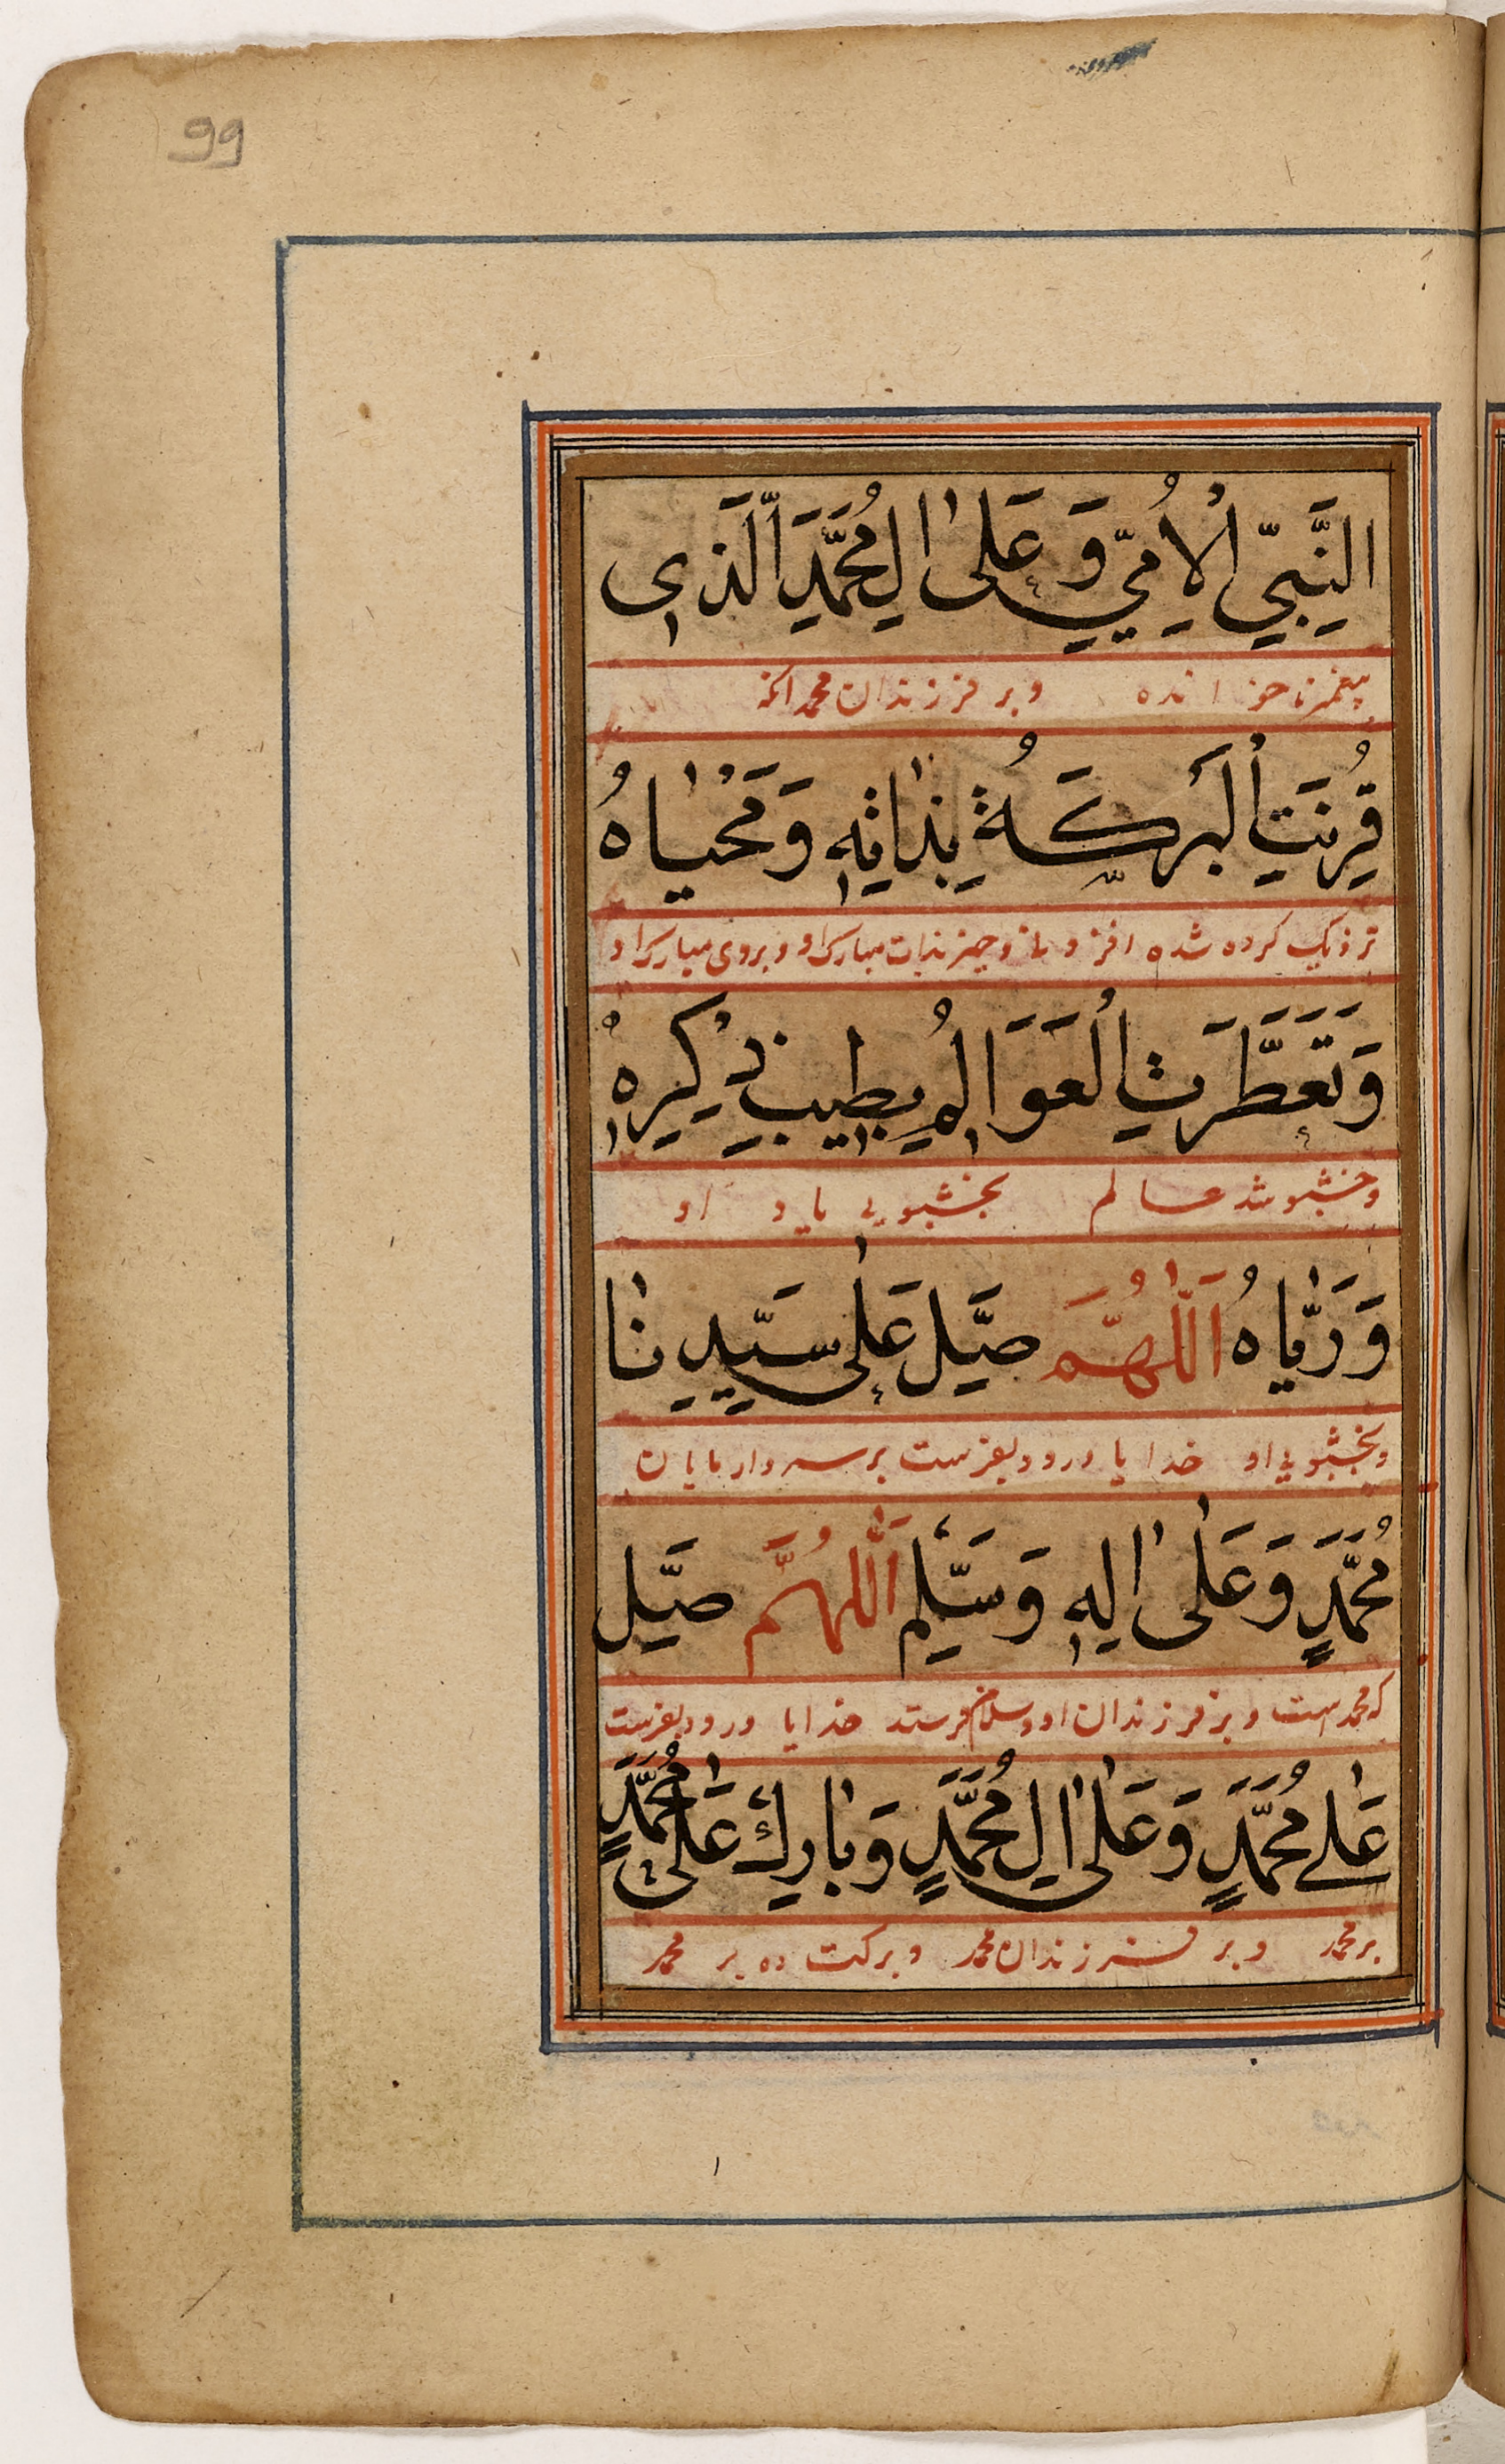 99
النَّبِيِّ الْاُمِّيِّ وَعَلىٰ اٰلِ مُحَمَّدَ الَّذِى
پیغمبر ناخوانده وبر فرزندان محمد انکه
قُرِنَتِ الْبَرَكَةُ بِذَاتِهٖ وَمَحْيَاهُ
نزدیک کرده شده افزونی وچیز بذات مبارک او وبروی مبارک او
وَتَعَطَّرَتِ الْعَوَالِمُ بِطِيبِ ذِكْرِهٖ
وخشبو شد عالم بخشبویی یاد او
وَرَيَّاهُ اَللّٰهُمَّ صَلِّ عَلىٰ سَيِّدِنَا
وبخشبویی او خدایا درود بفرست بر سردار مایان
مُحَمَّدٍ وَعَلىٰ اٰلِهٖ وَسَلِّمْ اَللّٰهُمَّ صَلِّ
که محمد است وبر فرزندان او وسلام فرستد خدایا درود بفرست
عَلٰى مُحَمَّدٍ وَعَلىٰ اٰلِ مُحَمَّدٍ وَبَارِكْ عَلىٰ مُحَمَّدٍ
بر محمد وبر فرزندان محمد وبرکت ده بر محمد